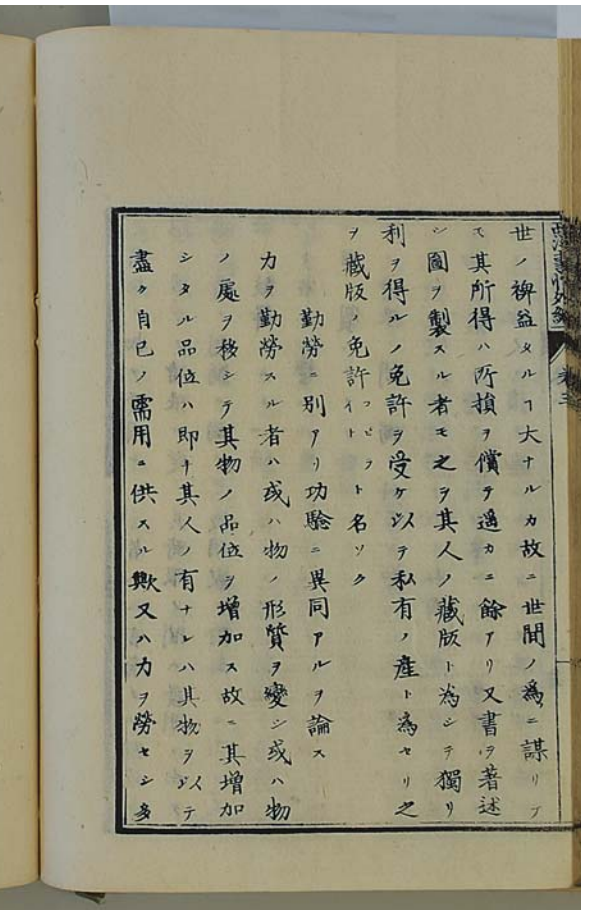 西洋事情外編
卷三
世ノ裨益タルヿ大ナルカ故ニ世間ノ爲ニ謀リテ
其所得ハ所損ヲ償テ遥カニ餘アリ又書ヲ著述
シ圖ヲ製スル者モ之ヲ其人ノ藏版ト為シテ獨リ
利ヲ得ルノ免許ヲ受ケ以テ私有ノ産ト為セリ之
ヲ藏版ノ免許コピライトト名ツク
勤勞ニ別アリ功驗ニ異同アルヲ論ス
力ヲ勤勞スル者ハ或ハ物ノ形質ヲ變シ或ハ物
ノ處ヲ移シテ其物ノ品位ヲ増加ス故ニ其増加
シタル品位ハ即チ其人ノ有ナレハ其物ヲ以テ
盡ク自己ノ需用ニ供スル歟又ハ力ヲ勞セシ多